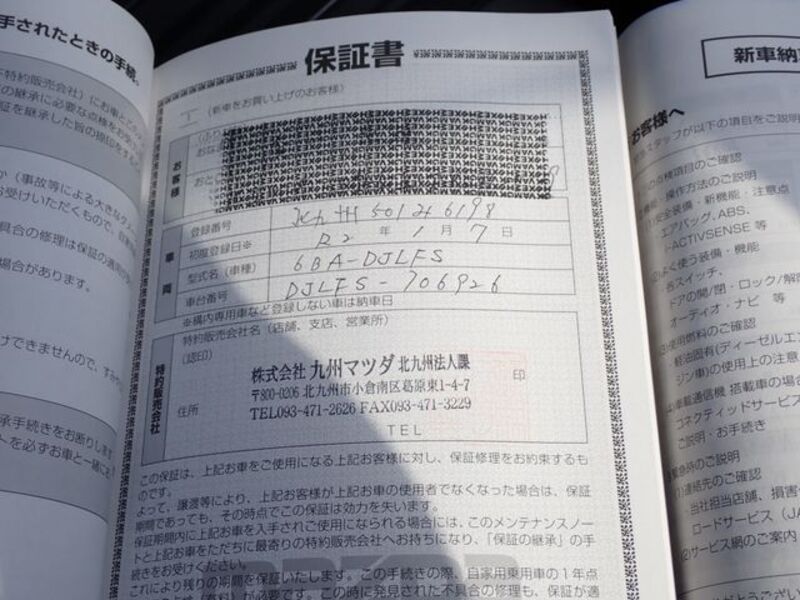 手されたときの手続
特約販売会社）にお車とこの
の継承に必要な点検をお受
証を継承した旨の捺印をする
か（事故等による大きなダメ
お受けいただくもので、自家
具合の修理は保証の適用が
場合があります。
けできませんので、すみや
承手続きをお断りします
トを必ずお車と一緒にお
保証書
（新車をお買い上げのお客様）
お客様
車両
登録番号
北九州 501 そ 6198
初度登録日※
R2 年 1 月 7 日
型式名（車種）
6BA-DJLFS
車台番号
DJLFS-706926
※構内専用車など登録しない車は納車日
特約販売会社
特約販売会社名（店舗、支店、営業所）
（認印）
株式会社 九州マツダ 北九州法人課
印
住所
〒800-0206 北九州市小倉南区葛原東1-4-7
TEL093-471-2626 FAX093-471-3229
TEL
この保証は、上記お車をご使用になる上記お客様に対し、保証修理をお約束するも
のです。
よって、譲渡等により、上記お客様が上記お車の使用者でなくなった場合は、保証
期間であっても、その時点でこの保証は効力を失います。
保証期間内に上記お車を入手されご使用になられる場合には、このメンテナンスノー
トと上記お車をただちに最寄りの特約販売会社へお持ちになり、「保証の継承」の手
続きをお受けください。
これにより残りの期間を保証いたします。この手続きの際、自家用乗用車の1年点
が必要です。この時に発見された不具合の修理も、保証が適
新車納
お客様へ
スタッフが以下の項目をご説明
の点検項目のご確認
機能・操作方法のご説明
(1)安全装備・新機能・注意点
エアバッグ、ABS、
i-ACTIVSENSE 等
(2)よく使う装備・機能
各スイッチ、
ドアの開/閉・ロック/解
オーディオ・ナビ 等
使用燃料のご確認
軽油固有(ディーゼルエ
ジン車)の使用上の注意
車載通信機 搭載車の場合
コネクティッドサービス
ご説明・お手続き
緊急時のご説明
(1)連絡先のご確認
当社担当店舗、損害
ロードサービス（JA
(2)サービス網のご案内